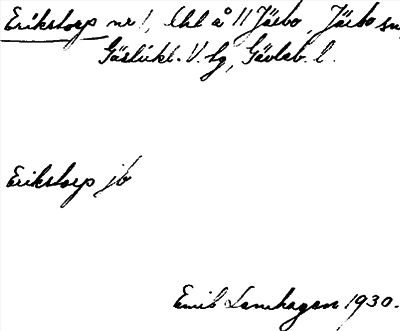 Erikstorp nr 1, lht å 11 Järbo, Järbo sn,
Gästrikl. V. hg, Gävleb. l.
Erikstorp jb
Emil Lanehagen 1930.